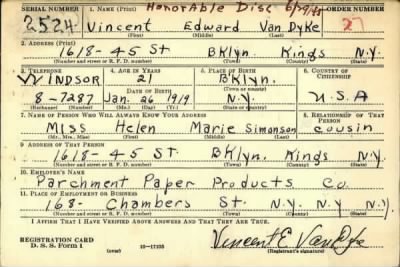 Honorable Disc 6/29/45
SERIAL NUMBER 1. NAME (Print) ORDER NUMBER
2524 Vincent Edward Van Dyke 27
(First) (Middle) (Last)
2. ADDRESS (Print)
1618-45 St BKlyn. Kings N.Y.
(Number and street or R. F. D. number) (Town) (County) (State)
3. TELEPHONE 4. AGE IN YEARS 5. PLACE OF BIRTH 6. COUNTRY OF CITIZENSHIP
WINDSOR 21 BKlyn.
DATE OF BIRTH (Town or county)
8-7287 Jan. 26 1919 N.Y. U.S.A
(Exchange) (Number) (Mo.) (Day) (Yr.) (State or country)
7. NAME OF PERSON WHO WILL ALWAYS KNOW YOUR ADDRESS 8. RELATIONSHIP OF THAT PERSON
Miss Helen Marie Simonson cousin
(Mr., Mrs., Miss) (First) (Middle) (Last)
9. ADDRESS OF THAT PERSON
1618-45 ST. BKlyn. Kings N.Y.
(Number and street or R. F. D. number) (Town) (County) (State)
10. EMPLOYER'S NAME
Parchment Paper Products Co.
11. PLACE OF EMPLOYMENT OR BUSINESS
168- Chambers St. N.Y. N.Y. N.Y.
(Number and street or R. F. D. number) (Town) (County) (State)
I AFFIRM THAT I HAVE VERIFIED ABOVE ANSWERS AND THAT THEY ARE TRUE.
REGISTRATION CARD
D. S. S. Form 1 (over) 16-17105 Vincent E. Van Dyke
(Registrant's signature)